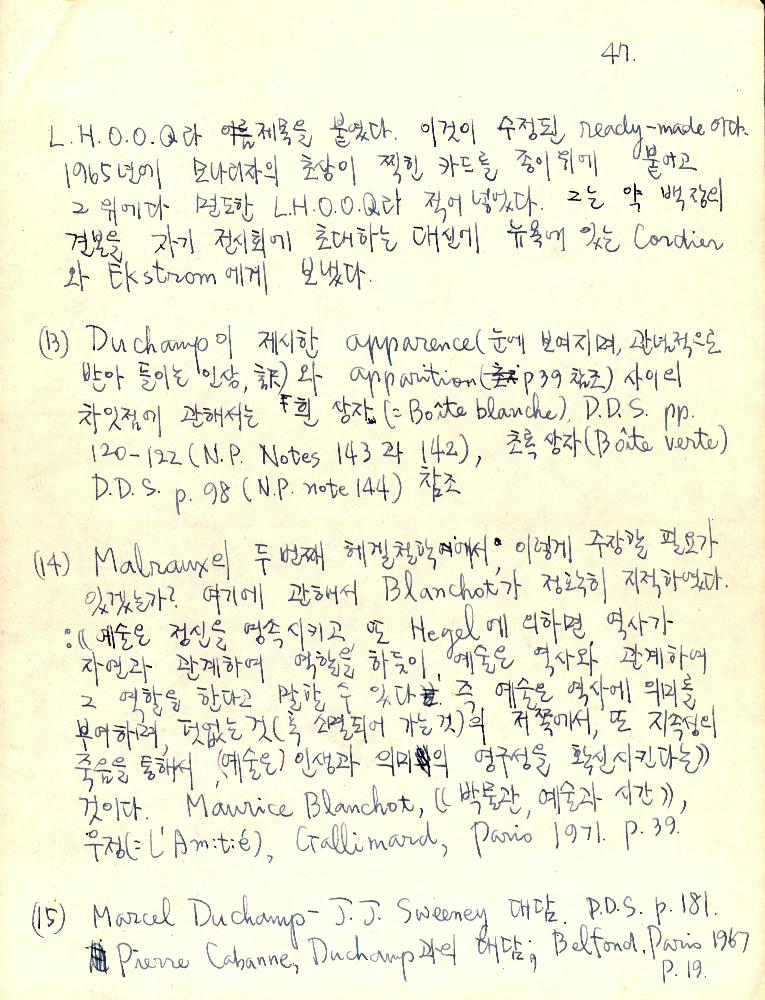 47.
L.H.O.O.Q라 이름제목을 붙였다. 이것이 수정된 ready-made이다.
1965년에 모나리자의 초상이 찍힌 카드를 종이위에 붙이고
그 위에다 면도한 L.H.O.O.Q라 적어 넣었다. 그는 약 백장의
견본을 자기 전시회에 초대하는 대신에 뉴욕에 있는 Cordier
와 Ekstrom에게 보냈다.
(13) Duchamp이 제시한 apparence(눈에 보여지며, 관념적으로
받아 들이는 인상, 訳)와 apparition(p39 참조) 사이의
차잇점에 관해서는 흰 상자 (=Boîte blanche), D.D.S. pp.
120-122 (N.P. Notes 143과 142), 초록상자(Boîte verte)
D.D.S. p. 98 (N.P. note 144) 참조
(14) Malraux의 두번째 헤겔철학에서 이렇게 주장할 필요가
있겠는가? 여기에 관해서 Blanchot가 정확히 지적하였다.
:《예술은 정신을 영속시키고, 또 Hegel에 의하면 역사가
자연과 관계하여 역할을 하듯이, 예술은 역사와 관계하여
그 역할을 한다고 말할 수 있다. 즉 예술은 역사에 의미를
부여하며, 덧없는것(혹 소멸되어 가는것)의 저쪽에서, 또 지속성의
죽음을 통해서, (예술은) 인생과 의미의 영구성을 확신시킨다는》
것이다. Maurice Blanchot, 《박물관, 예술과 시간》,
우정(=L'Amitié), Gallimard, Paris 1971. p. 39.
(15) Marcel Duchamp - J.J. Sweeney 대담. D.D.S. p. 181.
Pierre Cabanne, Duchamp과의 대담; Belfond. Paris 1967
p. 19.